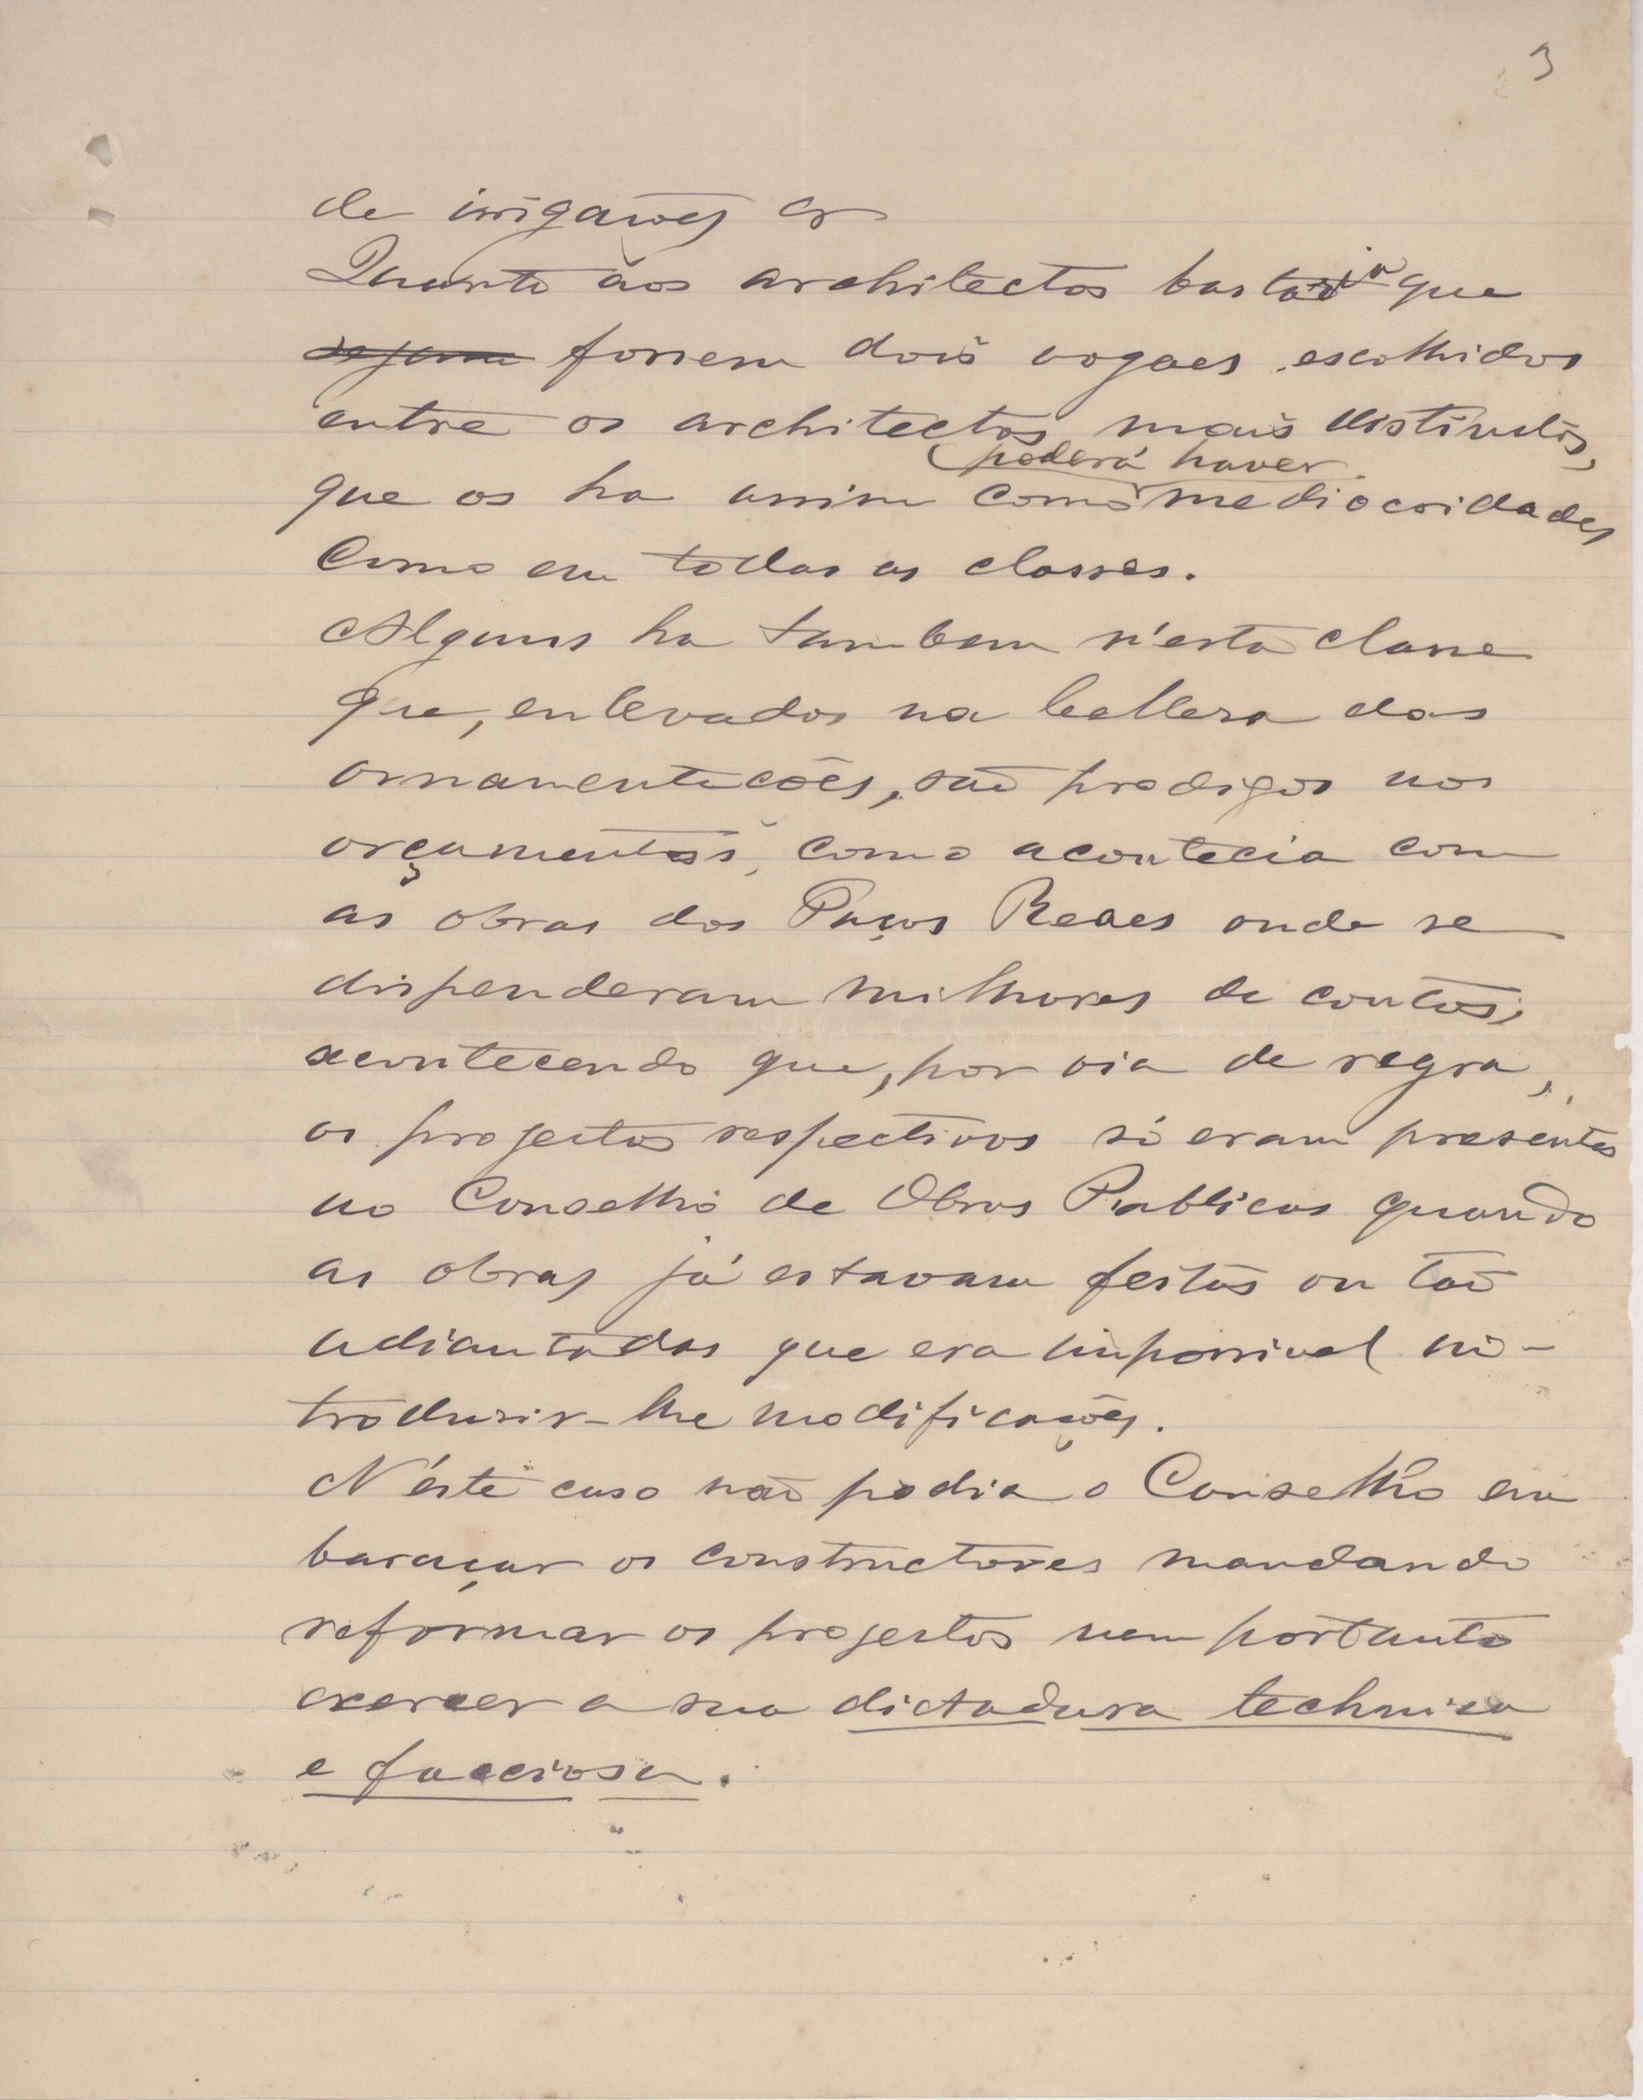 3
de irrigações &
Quanto áos architectos bastaria que
sejam fossem dois vogaes escolhidos
entre os architectos mais distinctos,
poderá haver
que os ha assim como mediocridades
como em todas as classes.
Alguns ha tambem n'esta classe
que, enlevados na belleza das
ornamentações, são prodigos nos
orçamentos, como acontecia com
as obras dos Paços Reaes onde se
dispenderam milhares de contos,
acontecendo que, por via de regra,
os projectos respectivos só eram presentes
ao Conselho de Obras Publicas quando
as obras já estavam feitas ou tão
adiantadas que era impossivel in-
troduzir-lhe modificações.
N'éste caso não podia o Conselho em
baraçar os constructores mandando
reformar os projectos nem portanto
exercer a sua dictadura technica
e facciosa.